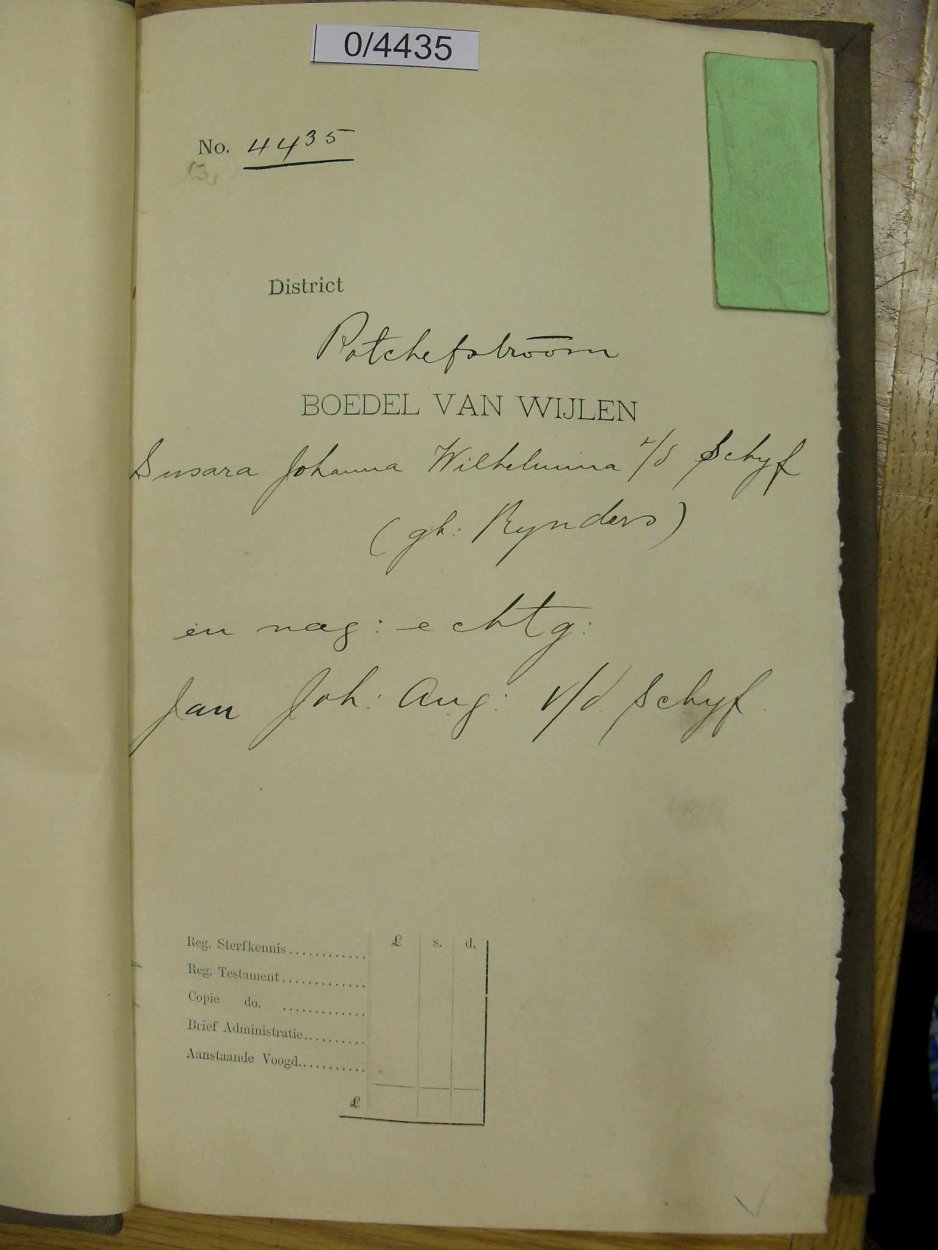 0/4435
No. 4435
District
Potchefstroom
BOEDEL VAN WIJLEN
Susara Johanna Wilhelmina v/d Schyf
(gb: Rynders)
en nag: echtg:
Jan Joh: Aug: v/d Schyf
£ s. d.
Reg. Sterfkennis
Reg. Testament
Copie do.
Brief Administratie
Aanstaande Voogd
£